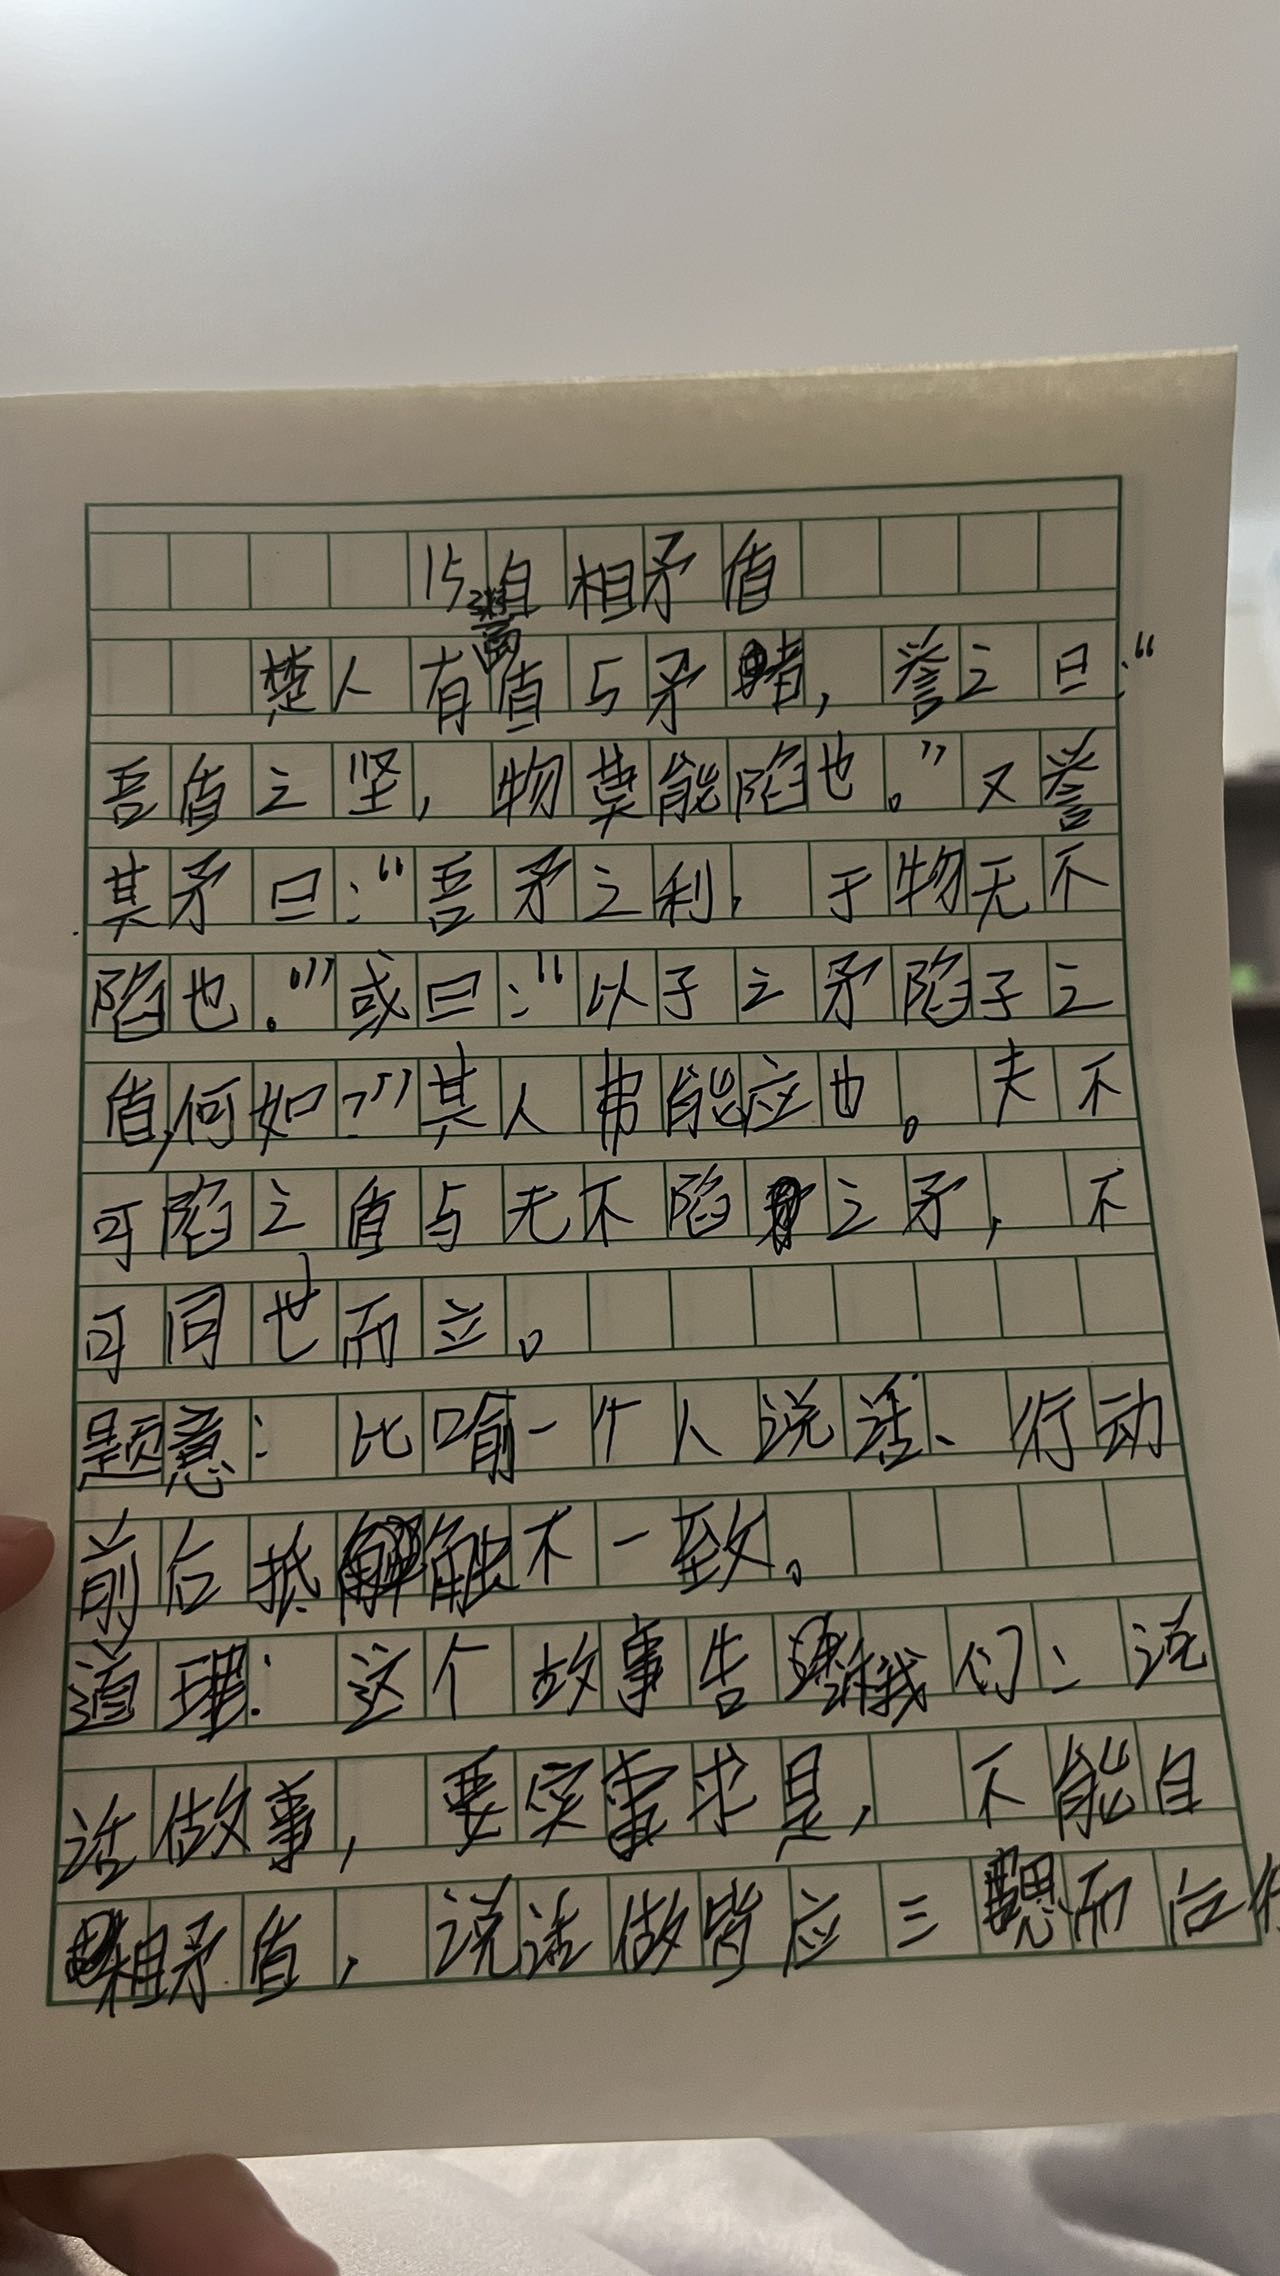 15自相矛盾
鬻
楚人有盾与矛者，誉之曰：“
吾盾之坚，物莫能陷也。”又誉
其矛曰：“吾矛之利，于物无不
陷也。”或曰：“以子之矛陷子之
盾，何如？”其人弗能应也。夫不
可陷之盾与无不陷之矛，不
可同世而立。
题意：比喻一个人说话、行动
前后抵触不一致。
道理：这个故事告诉我们：说
话做事，要实事求是，不能自
相矛盾，说话做皆应三思而后